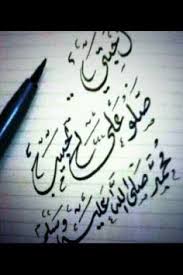 أحبتي ..
صلوا على الحبيب
محمد صلى الله عليه وسلم